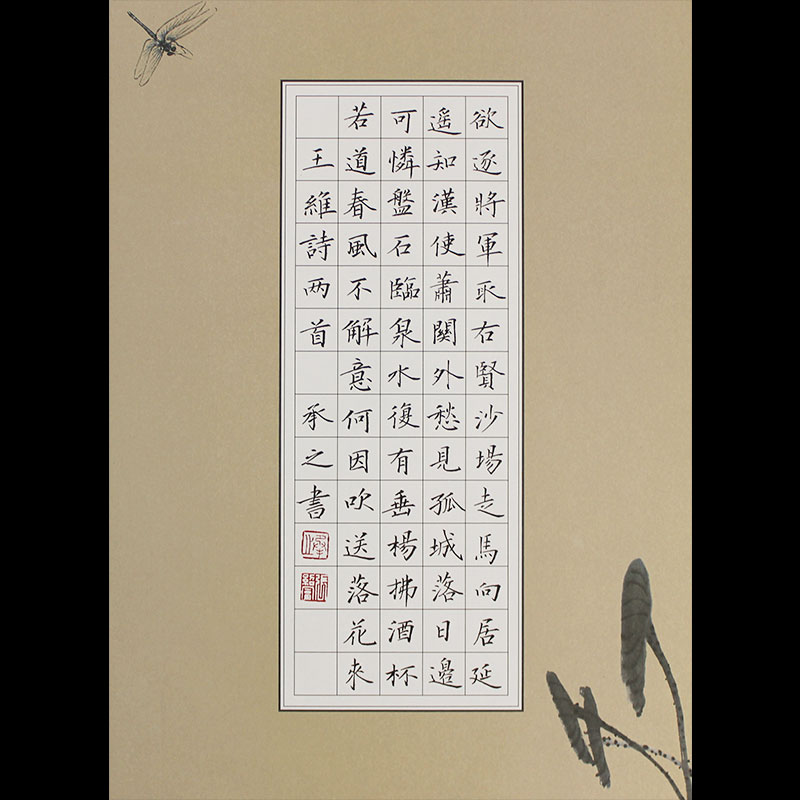 欲逐將軍取右賢沙場走馬向居延
遥知漢使蕭關外愁見孤城落日邊
可憐盤石臨泉水復有垂楊拂酒杯
若道春風不解意何因吹送落花來
王維詩两首 承之書